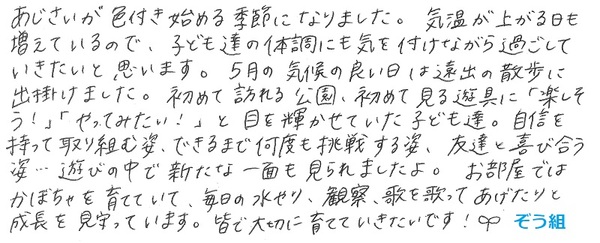 あじさいが色付き始める季節になりました。気温が上がる日も
増えているので、子ども達の体調にも気を付けながら過ごして
いきたいと思います。5月の気候の良い日は遠出の散歩に
出掛けました。初めて訪れる公園、初めて見る遊具に「楽しそ
う!」「やってみたい!」と目を輝かせていた子ども達。自信を
持って取り組む姿、できるまで何度も挑戦する姿、友達と喜び合う
姿…遊びの中で新たな一面も見られましたよ。お部屋では
かぼちゃを育てていて、毎日の水やり、観察、歌を歌ってあげたりと
成長を見守っています。皆で大切に育てていきたいです!ぞう組